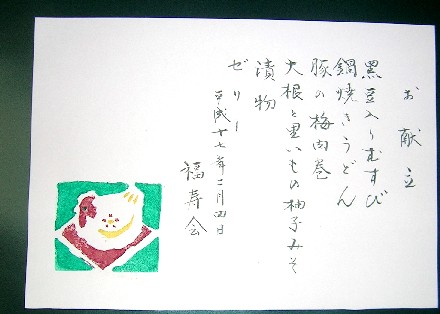 お献立
黒豆入りむすび
鍋焼きうどん
豚の梅肉巻
大根と里いもの柚子みそ
漬物
ゼリー
平成十七年二月四日
福寿会